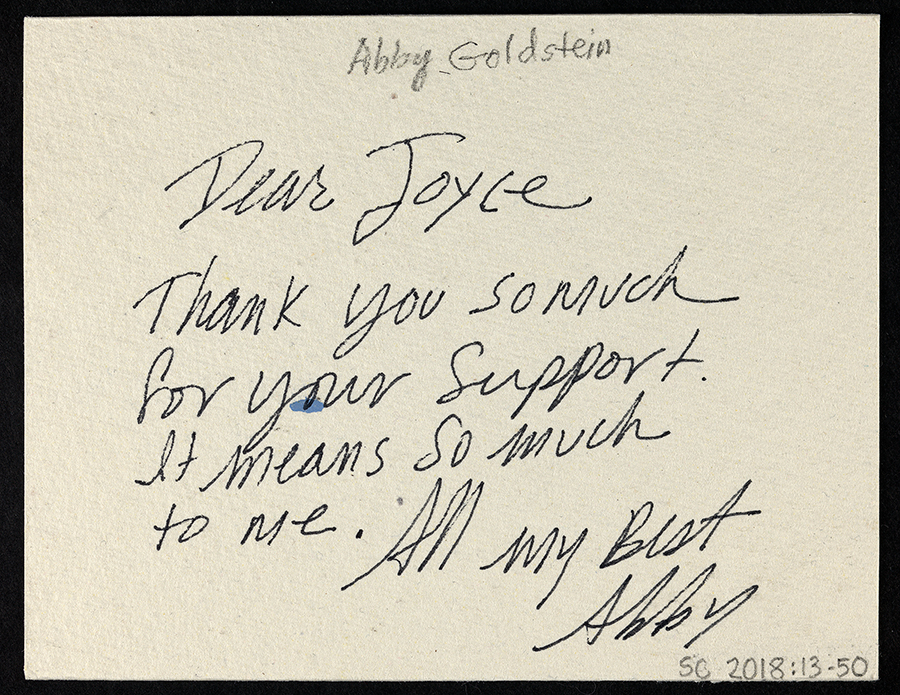 Abby Goldstein
Dear Joyce
Thank you so much
for your support.
It means so much
to me. All my Best
Abby
SC 2018:13-50